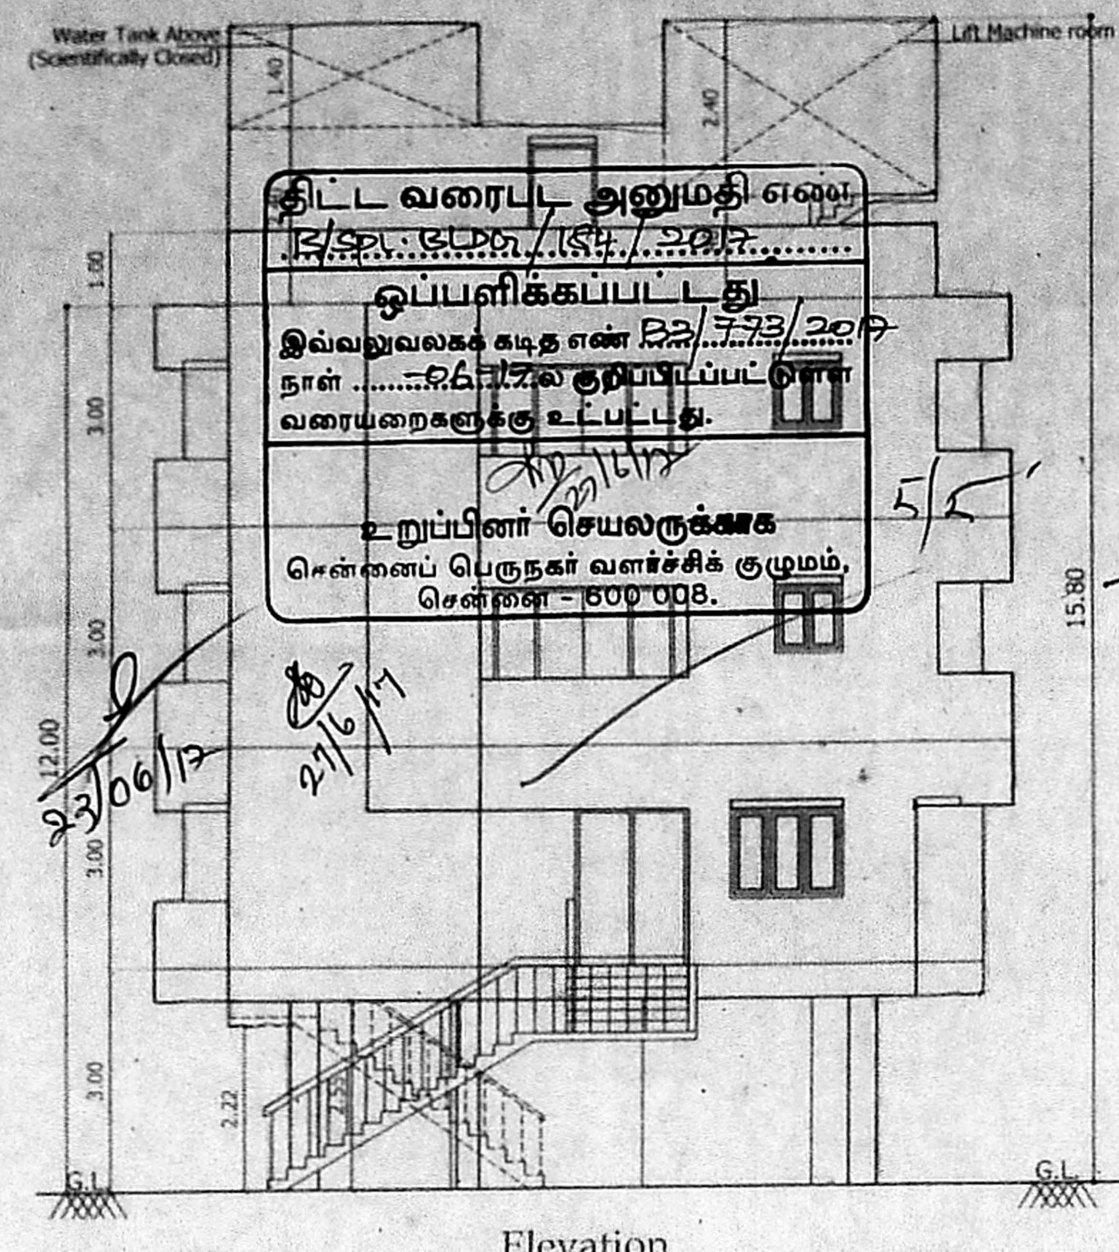 Water Tank Above
(Scientifically Closed)
Lift Machine room
1.40
2.40
திட்ட வரைபட அனுமதி எண்
B/Spl. BLDG/184/2017
ஒப்பளிக்கப்பட்டது
இவ்வலுவலகக் கடித எண் B3/773/2017
நாள் -06-17ல் குறிப்பிடப்பட்டுள்ள
வரையறைகளுக்கு உட்பட்டது.
27/6/17
உறுப்பினர் செயலருக்காக
சென்னைப் பெருநகர் வளர்ச்சிக் குழுமம்,
சென்னை - 600 008.
5/5
1.00
3.00
3.00
12.00
15.80
23/06/17
27/6/17
3.00
3.00
2.22
2.55
G.L
G.L.
Elevation